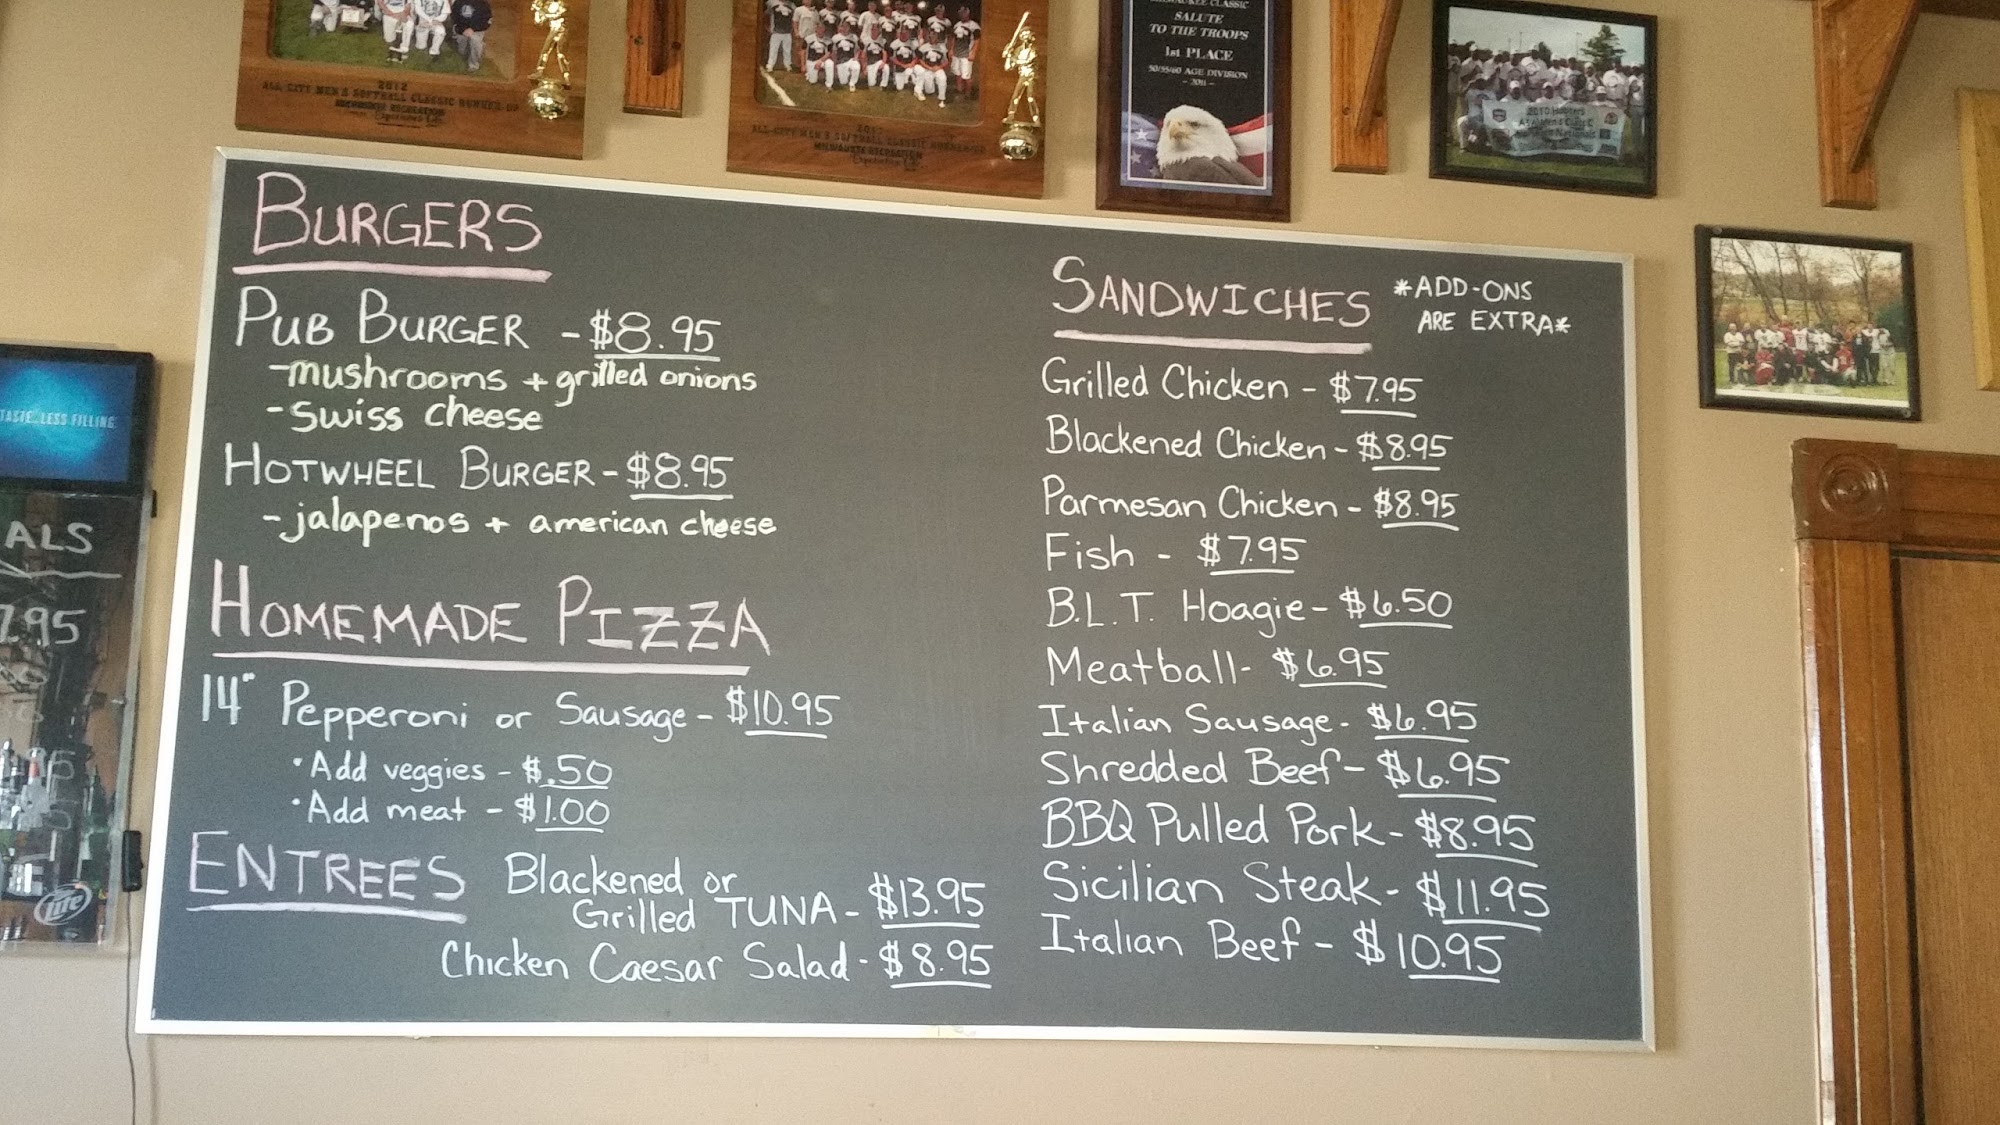 2012
ALL CITY MEN'S SOFTBALL CLASSIC RUNNER-UP
MILWAUKEE RECREATION
ALL-CITY MEN'S SOFTBALL CLASSIC RUNNER-UP
MILWAUKEE RECREATION
MILWAUKEE CLASSIC
SALUTE
TO THE TROOPS
1st PLACE
50/55/60 AGE DIVISION
- 2011 -
BURGERS
PUB BURGER - $8.95
- mushrooms + grilled onions
- swiss cheese
HOTWHEEL BURGER - $8.95
- jalapenos + american cheese
HOMEMADE PIZZA
14" Pepperoni or Sausage - $10.95
• Add veggies - $.50
• Add meat - $1.00
ENTREES
Blackened or
Grilled TUNA - $13.95
Chicken Caesar Salad - $8.95
SANDWICHES
*ADD-ONS
ARE EXTRA*
Grilled Chicken - $7.95
Blackened Chicken - $8.95
Parmesan Chicken - $8.95
Fish - $7.95
B.L.T. Hoagie - $6.50
Meatball - $6.95
Italian Sausage - $6.95
Shredded Beef - $6.95
BBQ Pulled Pork - $8.95
Sicilian Steak - $11.95
Italian Beef - $10.95
TASTE. LESS FILLING
ALS
7.95
Lite